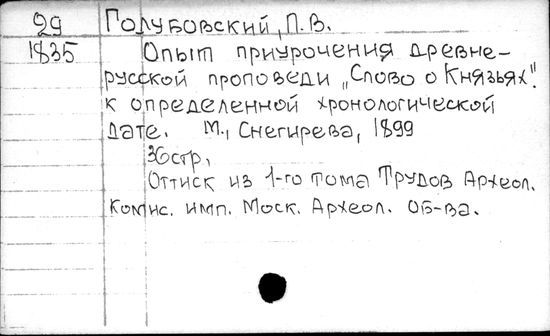 29 Голубовский, П.В.
1835 Опыт приурочения древне-
русской проповеди „Слово о Князьях".
к определенной хронологической
дате. М., Снегирева, 1899
36стр,
Оттиск из 1-го тома Трудов Археол.
Комис. имп. Моск. Археол. об-ва.